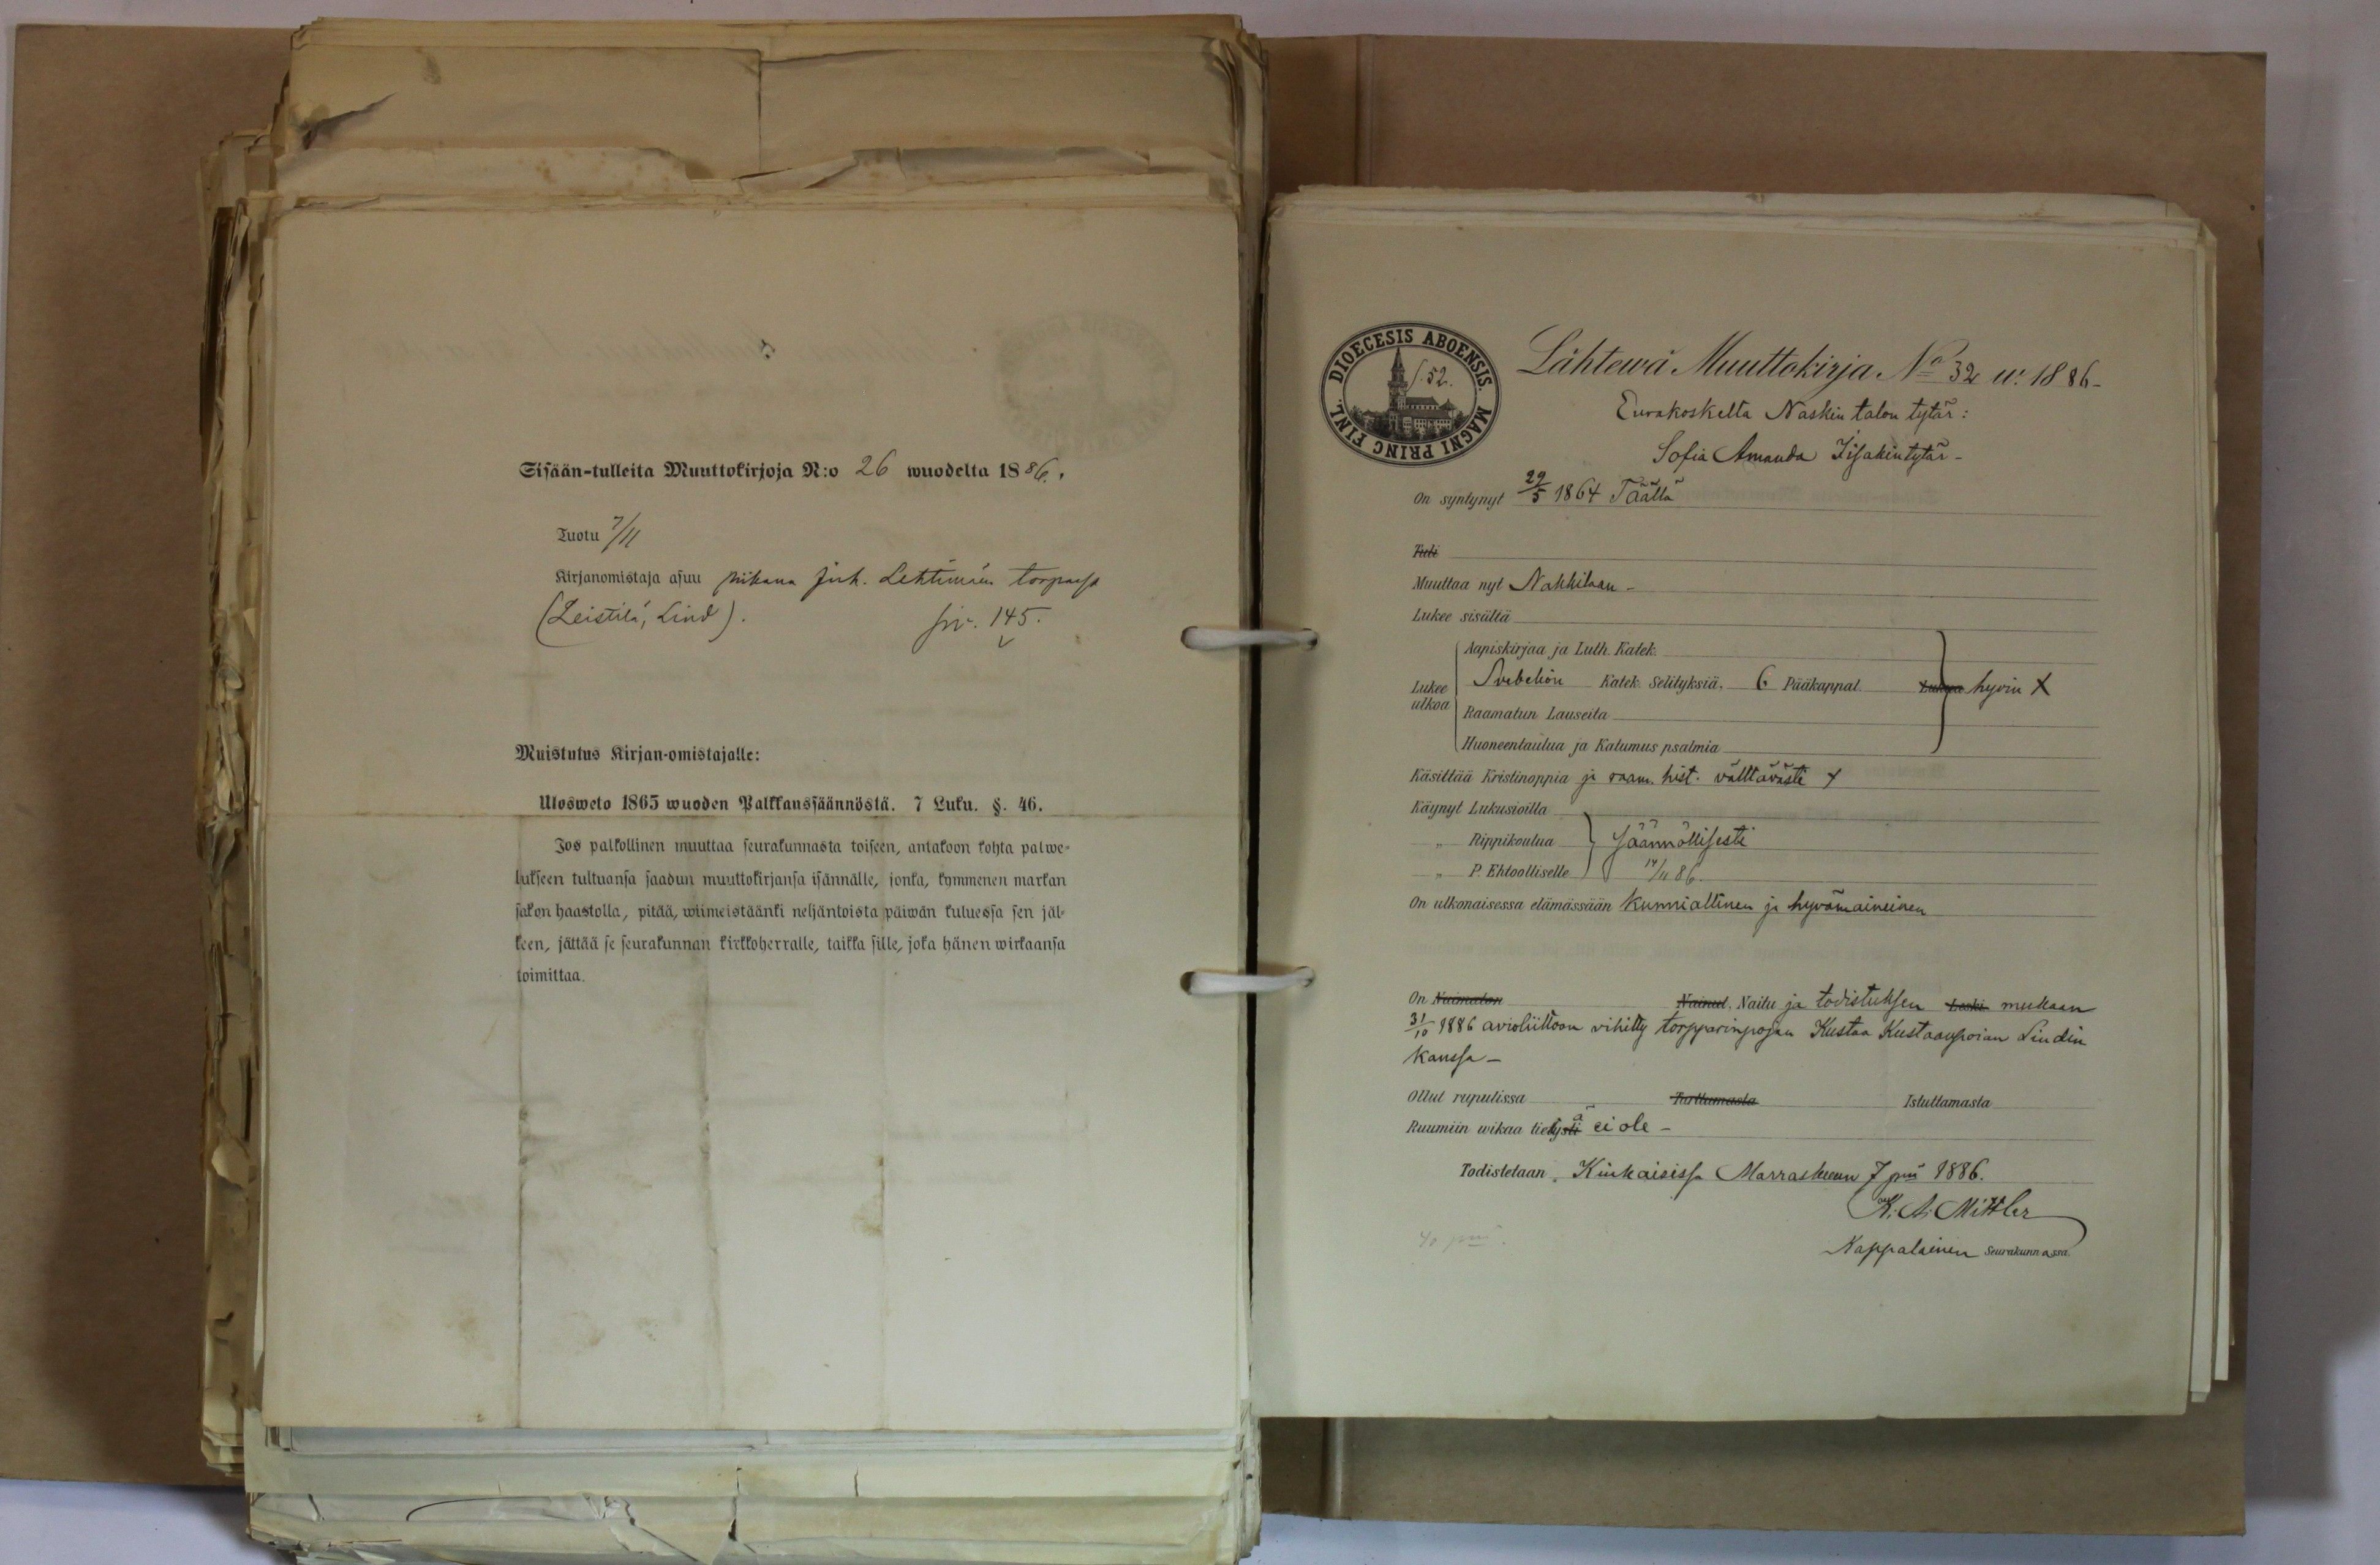 Sisään-tulleita Muuttokirjoja N:o 26 wuodelta 1886.
Tuotu 7/11
Kirjanomistaja asuu piikana Juh. Lehtimäen torpassa
(Leistilä, Lind). siv. 145.
Muistutus Kirjan-omistajalle:
Ulosweto 1865 wuoden Palkkanssäännöstä. 7 Luku. §. 46.
Jos palkollinen muuttaa seurakunnasta toiseen, antakoon kohta palwe-
lukseen tultuansa saadun muuttokirjansa isännälle, jonka, kymmenen markan
sakon haastolla, pitää, wiimeistäänki neljäntoista päiwän kuluessa sen jäl-
keen, jättää se seurakunnan kirkkoherralle, taikka sille, joka hänen wirkaansa
toimittaa.
DIOECESIS ABOENSIS. MAGNI PRINC FINL.
S. 52.
Lähtewä Muuttokirja No 32 w. 1886-
Eurakoskelta Naskin talon tytär:
Sofia Amanda Iisakintytär-
On syntynyt 29/5 1864 Täällä
Tuli
Muuttaa nyt Nakkilaan-
Lukee sisältä
Aapiskirjaa ja Luth. Katek.
Lukee ulkoa Svebelion Katek. Selityksiä, 6 Pääkappal. Lukua hyvin X
Raamatun Lauseita
Huoneentaulua ja Katumus psalmia
Käsittää Kristinoppia ja raam. hist. välttävästi X
Käynyt Lukusioilla
" Rippikoulua säännöllisesti
" P. Ehtoolliselle 14/11 86.
On ulkonaisessa elämässään kunniallinen ja hyvämaineinen
On Naimaton Nainut, Naitu ja todistuksen Leski mukaan
31/10 1886 avioliittoon vihitty torpparinpojan Kustaa Kustaanpoian Lindin
kanssa-
Ollut rupulissa Tarttumasta Istuttamasta
Ruumiin wikaa tietysti ä ei ole-
Todistetaan, Kiukaisissa Marraskuun 7 pnä 1886.
K. A. Mittler
Kappalainen Seurakunnassa.